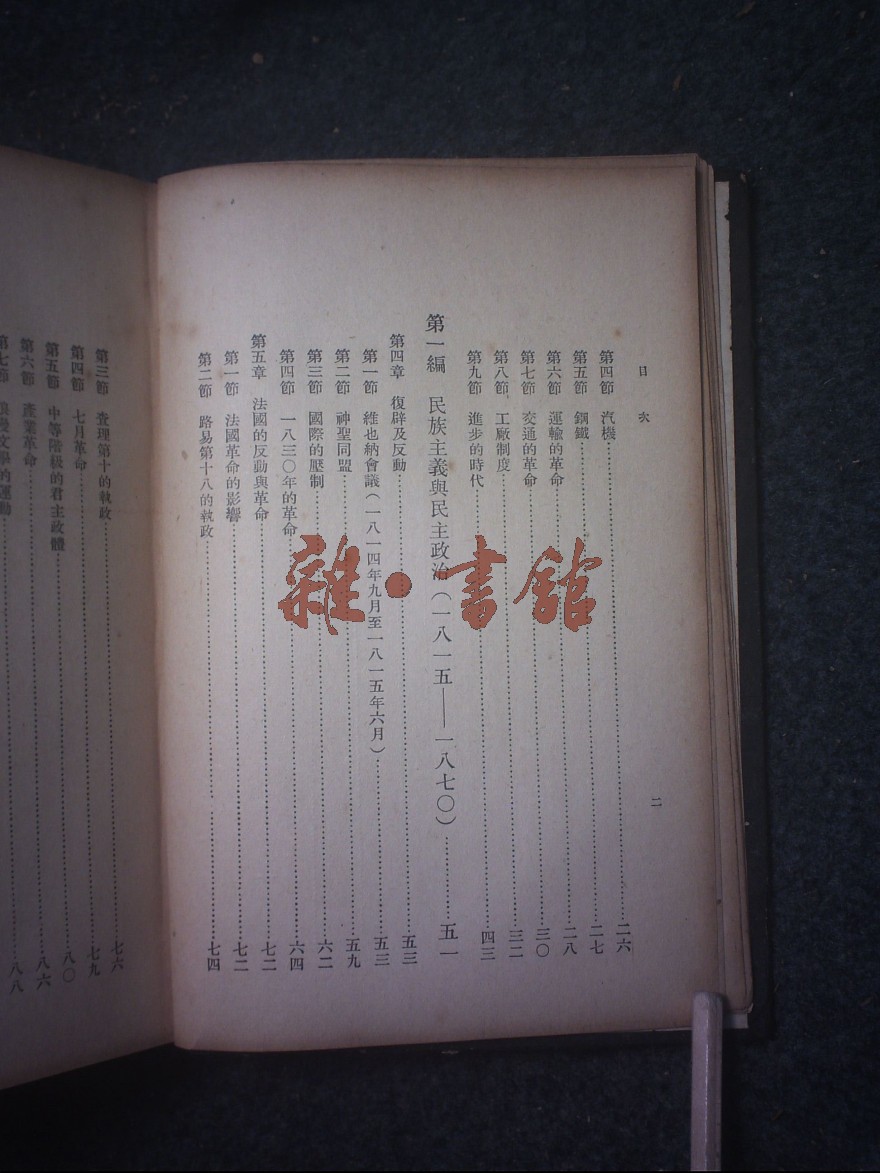 目次
二
第四節 汽機 二六
第五節 鋼鐵 二七
第六節 運輸的革命 二八
第七節 交通的革命 三〇
第八節 工廠制度 三二
第九節 進步的時代 四三
第一編 民族主義與民主政治(一八一五——一八七〇) 五一
第四章 復辟及反動 五三
第一節 維也納會議(一八一四年九月至一八一五年六月) 五三
第二節 神聖同盟 五九
第三節 國際的壓制 六二
第四節 一八三〇年的革命 六四
第五章 法國的反動與革命 七二
第一節 法國革命的影響 七二
第二節 路易第十八的執政 七四
第三節 查理第十的執政 七六
第四節 七月革命 七九
第五節 中等階級的君主政體 八〇
第六節 產業革命 八六
第七節 浪漫文學的運動 八八
雜·書館